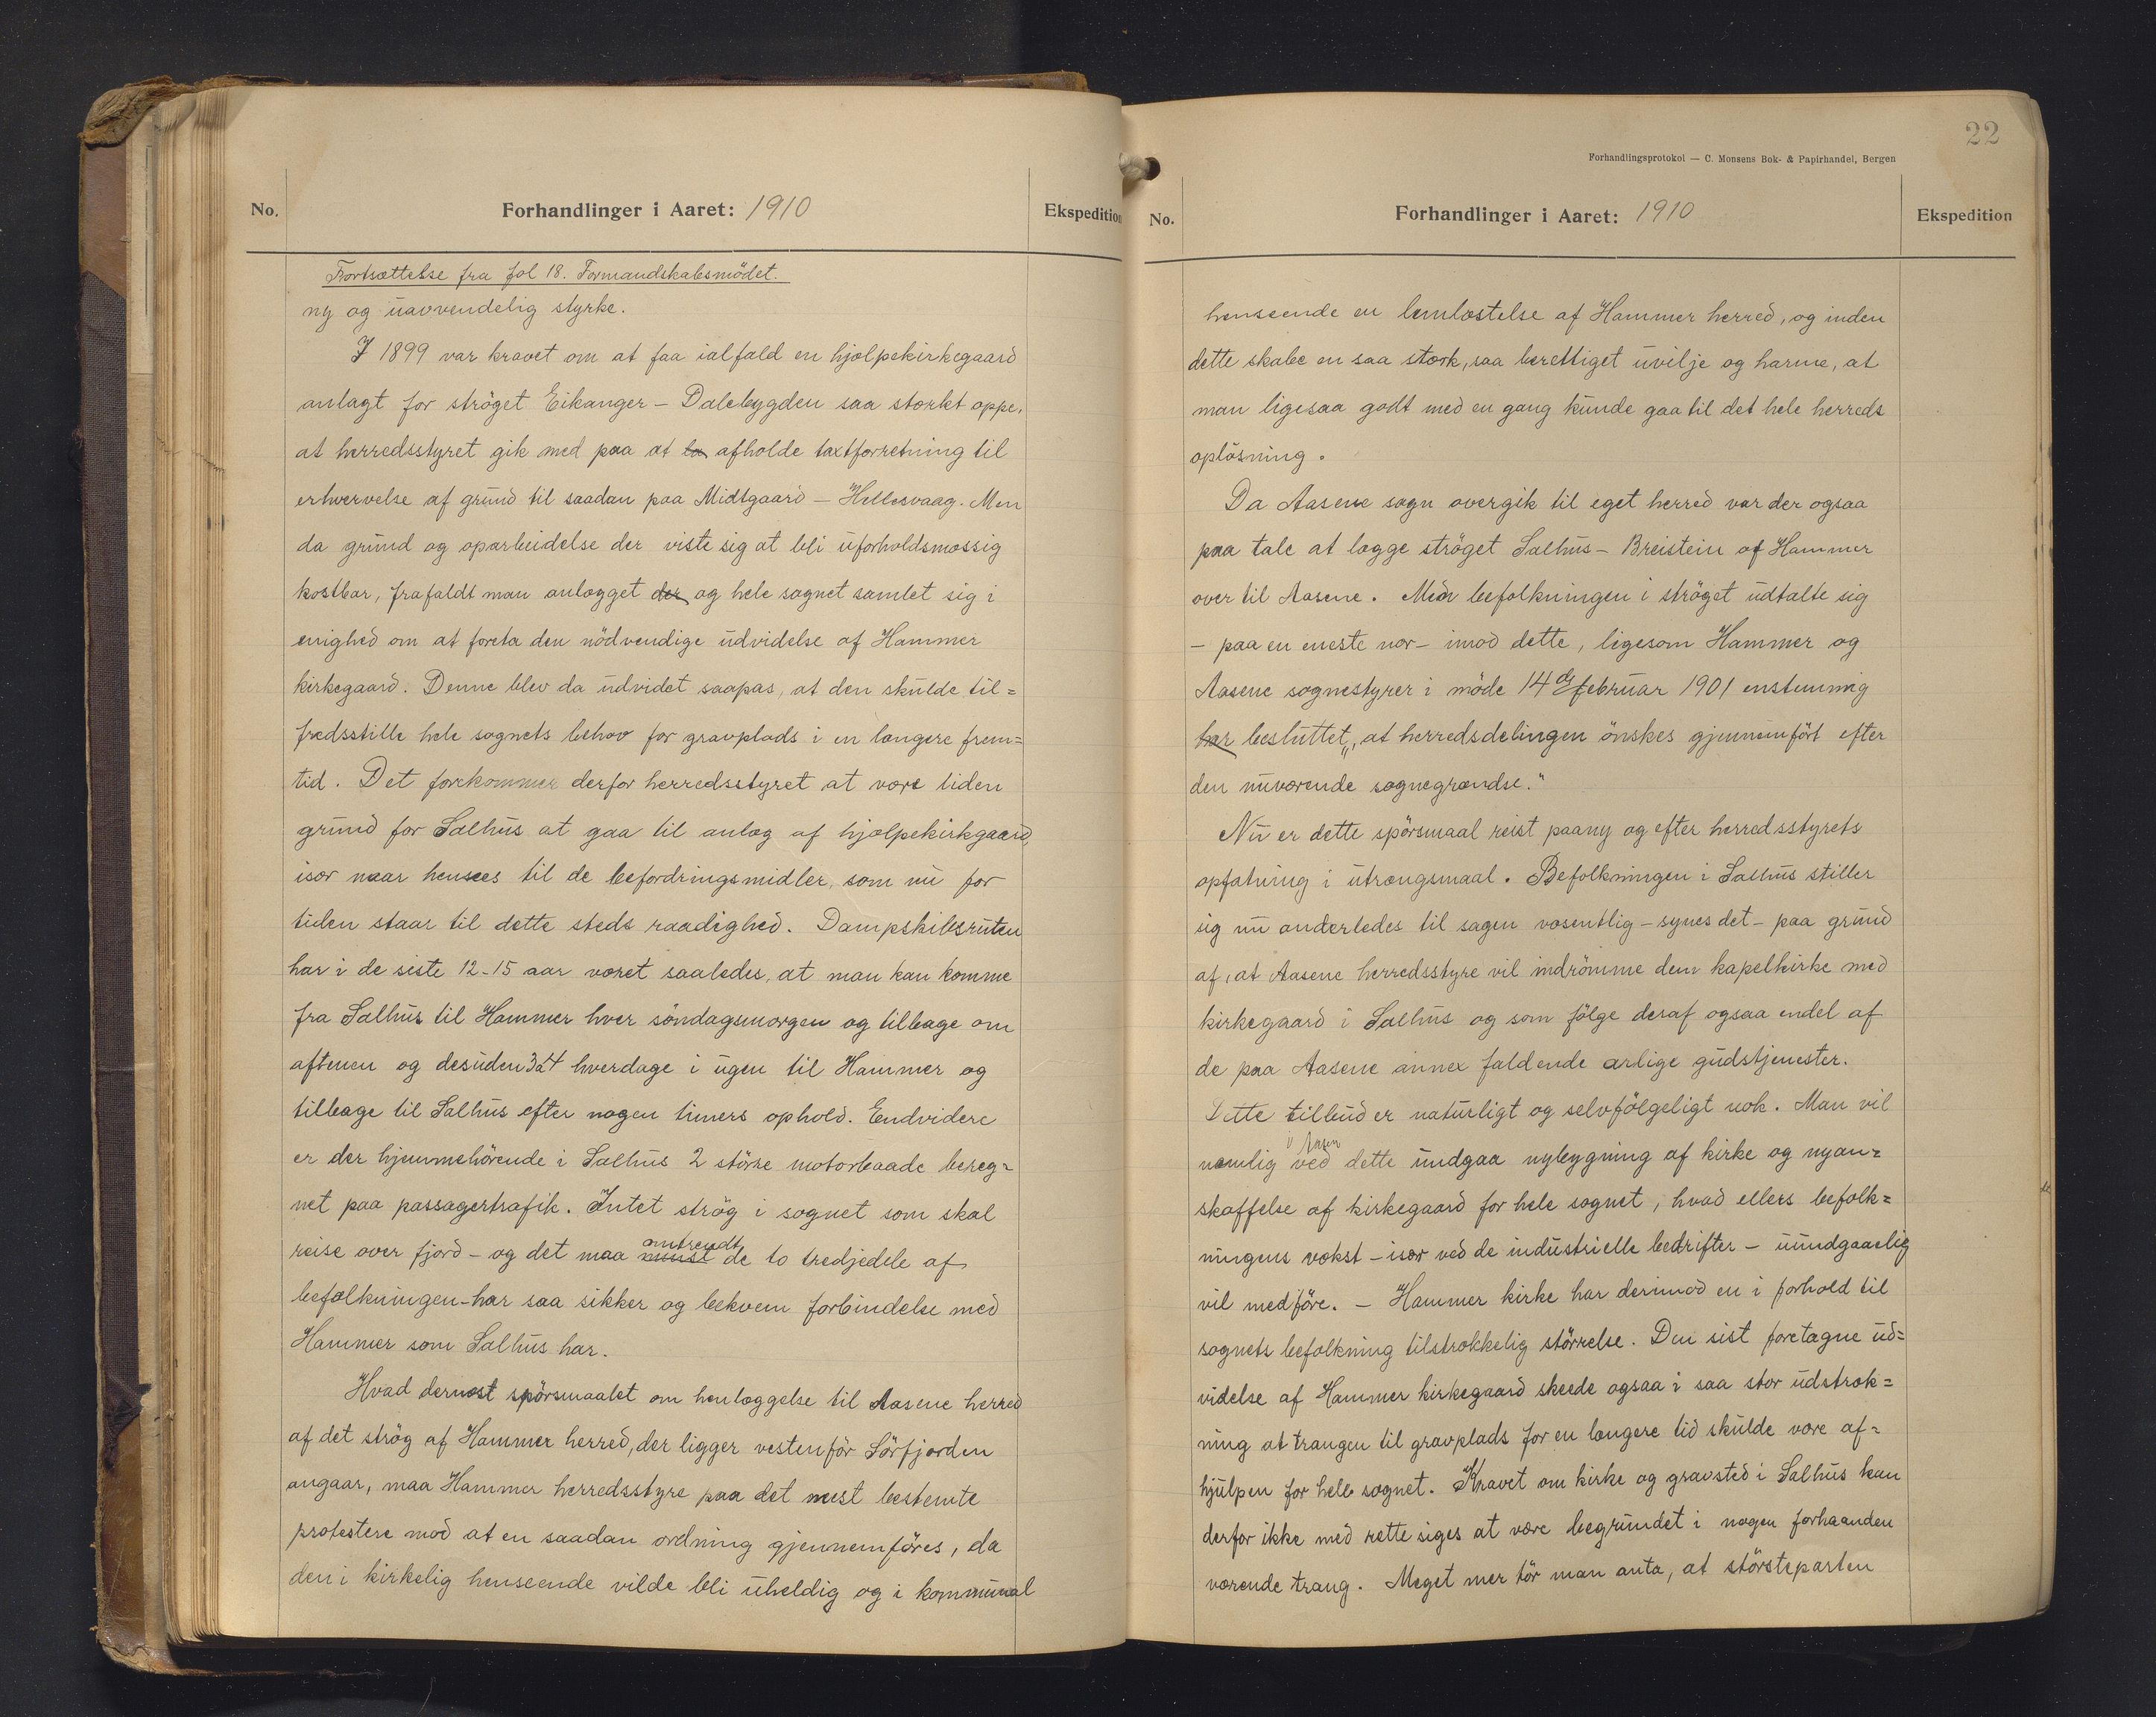 No.
Forhandlinger i Aaret: 1910
Ekspedition
Fortsættelse fra fol 18. Formandskabsmödet.
ny og uavvendelig styrke.
I 1899 var kravet om at faa ialfald en hjælpekirkegaard
anlagt for ströget Eikanger – Dalebygden saa stærkt oppe,
at herredsstyret gik med paa at la afholde taxtforretning til
erhvervelse af grund til saadan paa Midtgaard – Hellesvaag. Men
da grund og oparbeidelse der viste sig at bli uforholdsmæssig
kostbar, frafaldt man anlægget der og hele sognet samlet sig i
enighed om at foreta den nödvendige udvidelse af Hammer
kirkegaard. Denne blev da udvidet saapas, at den skulde til=
fredsstille hele sognets behov for gravplads i en længere frem=
tid. Det forekommer derfor herredsstyret at være liden
grund for Salhus at gaa til anlæg af hjælpekirkgaard,
især naar hensees til de befordringsmidler, som nu for
tiden staar til dette steds raadighed. Dampskibsruten
har i de siste 12-15 aar været saaledes, at man kan komme
fra Salhus til Hammer hver söndagsmorgen og tilbage om
aftenen og desuden 3 a 4 hverdage i ugen til Hammer og
tilbage til Salhus efter nogen timers ophold. Endvidere
er der hjemmehörende i Salhus 2 större motorbaade bereg=
net paa passagertrafik. Intet strög i sognet som skal
omtrendt
reise over fjord – og det maa de to tredjedele af
befolkningen – har saa sikker og bekvem forbindelse med
Hammer som Salhus har.
Hvad dernæst spörsmaalet om henlæggelse til Aasene herred
af det strög af Hammer herred, der ligger vestenför Sörfjorden
angaar, maa Hammer herredsstyre paa det mest bestemte
protestere mod at en saadan ordning gjennemföres, da
den i kirkelig henseende vilde bli uheldig og i kommunal
22
Forhandlingsprotokol — C. Monsens Bok- & Papirhandel, Bergen
No.
Forhandlinger i Aaret: 1910
Ekspedition
henseende en lemlæstelse af Hammer herred, og inden
dette skabe en saa stærk, saa berettiget uvilje og harme, at
man ligesaa godt med en gang kunde gaa til det hele herreds
oplösning.
Da Aasene sogn overgik til eget herred var der ogsaa
paa tale at lægge ströget Salhus – Breistein af Hammer
over til Aasene. Men befolkningen i ströget udtalte sig
– paa en eneste nær – imod dette, ligesom Hammer og
Aasene sognestyrer i möde 14de februar 1901 enstemmig
har besluttet „at herredsdelingen önskes gjennemfört efter
den nuværende sognegrændse."
Nu er dette spörsmaal reist paany og efter herredsstyrets
opfatning i utrængsmaal. Befolkningen i Salhus stiller
sig nu anderledes til sagen væsentlig – synes det – paa grund
af, at Aasene herredsstyre vil indrömme dem kapelkirke med
kirkegaard i Salhus og som fölge deraf ogsaa endel af
de paa Aasene annex faldende arlige gudstjenester.
Dette tilbud er naturligt og selvfölgeligt nok. Man vil
i Aasen
nemlig ved dette undgaa nybygning af kirke og nyan=
skaffelse af kirkegaard for hele sognet, hvad ellers befolk=
ningens vækst – især ved de industrielle bedrifter – uundgaaelig
vil medföre. – Hammer kirke har derimod en i forhold til
sognets befolkning tilstrækkelig störrelse. Den sist foretagne ud=
videlse af Hammer kirkegaard skeede ogsaa i saa stor udstræk=
ning at trangen til gravplads for en længere tid skulde være af=
hjulpen for hele sognet. Kravet om kirke og gravsted i Salhus kan
derfor ikke med rette siges at være begrundet i nogen forhaanden
værende trang. Meget mer tör man anta, at störsteparten